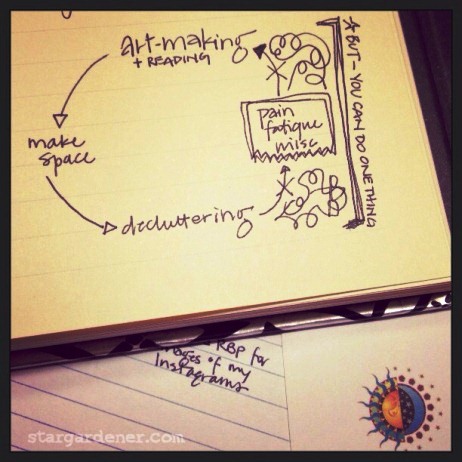 art-making
+ READING
make
space
decluttering
pain
fatigue
misc
* BUT - YOU CAN DO ONE THING
RBP for
images of my
Instagrams
stargardener.com